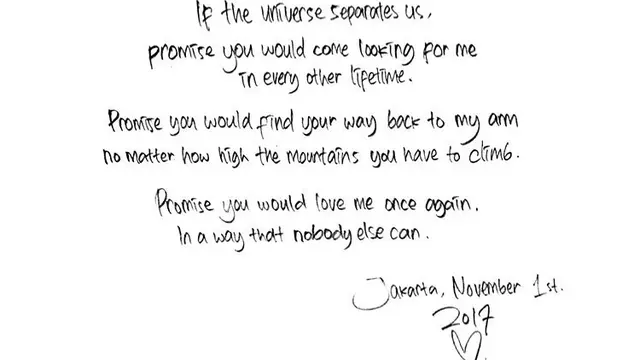 If the universe separates us,
promise you would come looking for me
in every other lifetime.
Promise you would find your way back to my arm
no matter how high the mountains you have to climb.
Promise you would love me once again.
In a way that nobody else can.
Jakarta, November 1st.
2017